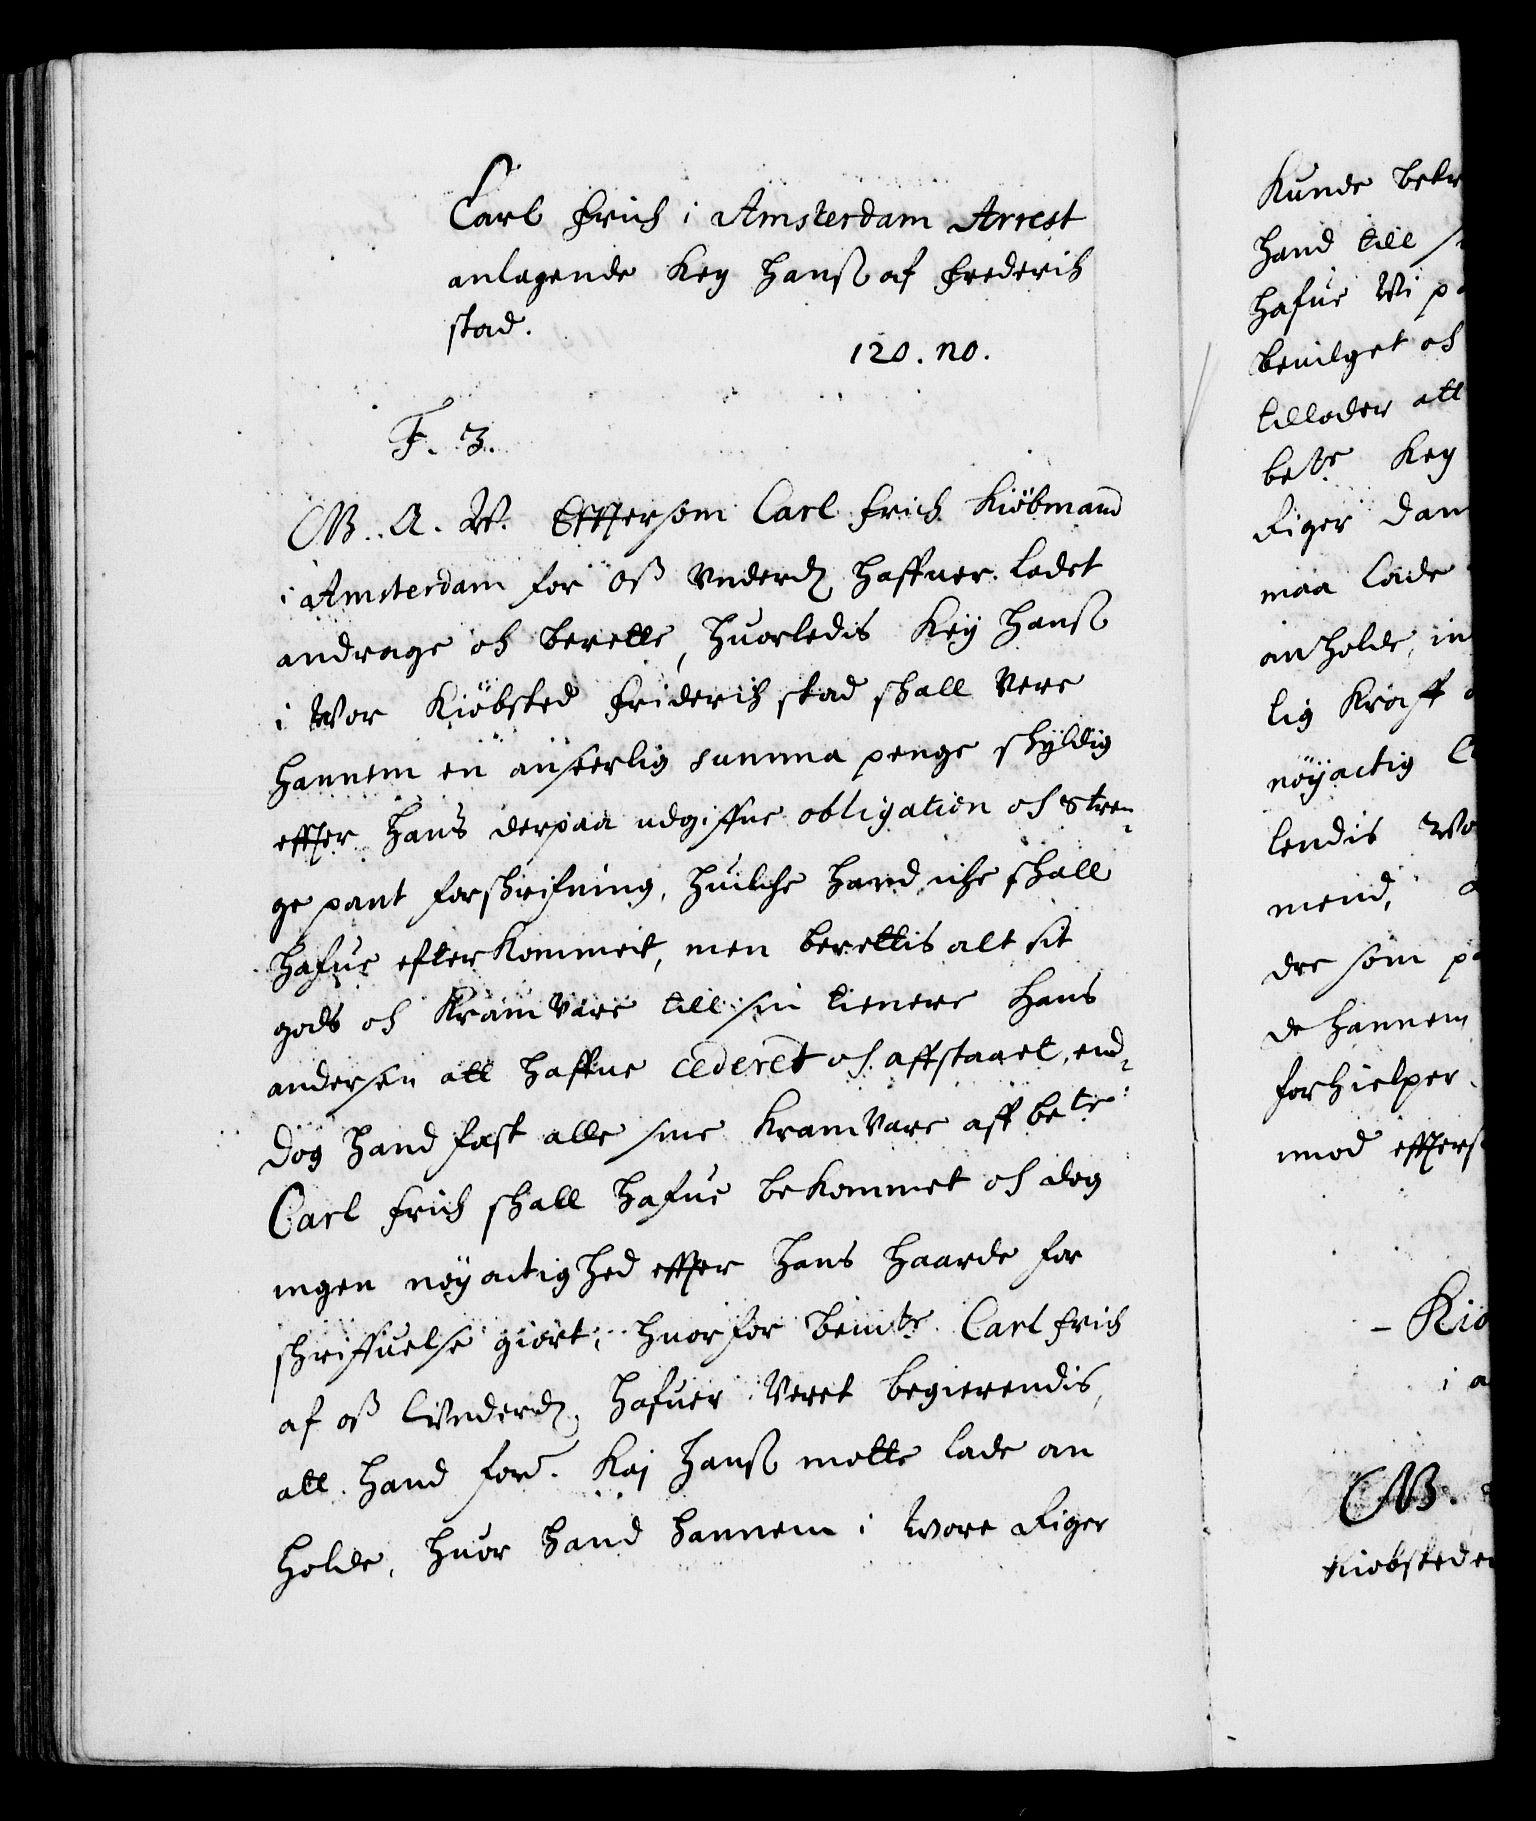 Carl Erich i Amsterdam Arrest
anlagende Key Hanß af Frederich
stad.
120. no.
F. 3.
G. A. W. Effter som Carl Erich Kiöbmand
i Amsterdam for oß underd haffuer ladet
andrage oh berette, huorledis Keÿ Hanß
i Wor Kiöbsted Friderich stad shall Vere
hannem en anseerlig summa penge shÿldig
effter hans derpaa udgiffne obligation oh stren¬
ge pant forshrifning, huilche hand iche shall
hafue efterkommeit, men berettis alt sit
gods oh Kramvare till sin tienere Hans
andersen att haffue cederet oh affstaaet, end¬
dog hand fast alle sine Kramvare aff bete
Carl Erich shall hafue bekommet oh dog
ingen nöÿactighed effter hans haarde for
shriffuelse giort, huorfor bemte Carl Erich
af oß Underd hafuer Veret begierendis,
att hand for. Kaj Hanß motte lade an
holde, huor hand hannem i Wore Riger
Kunde betr
hand till
hafue Wi p
beuilget oh
tillader att
bete Key
Riger Dan
maa lade
anholde, in
lig Kraft
nöÿactig
lendis Wo
mend,
dre som p
de hannem
forhielper
imod effters
- Kiö
i a
G.
Kiöbstede